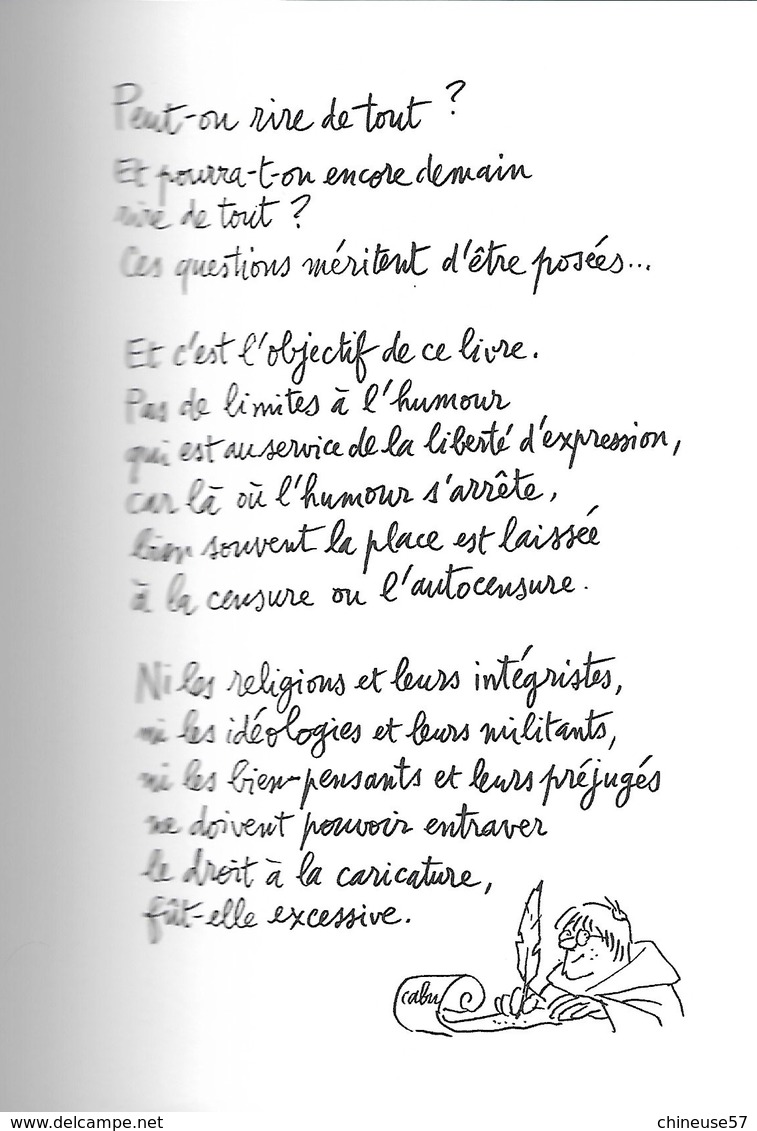 Peut-on rire de tout ?
Et pourra-t-on encore demain
rire de tout ?
Ces questions méritent d'être posées...
Et c'est l'objectif de ce livre.
Pas de limites à l'humour
qui est au service de la liberté d'expression,
car là où l'humour s'arrête,
bien souvent la place est laissée
à la censure ou l'autocensure.
Ni les religions et leurs intégristes,
ni les idéologies et leurs militants,
ni les bien-pensants et leurs préjugés
ne doivent pouvoir entraver
le droit à la caricature,
fût-elle excessive.
cabu
www.delcampe.net
chineuse57